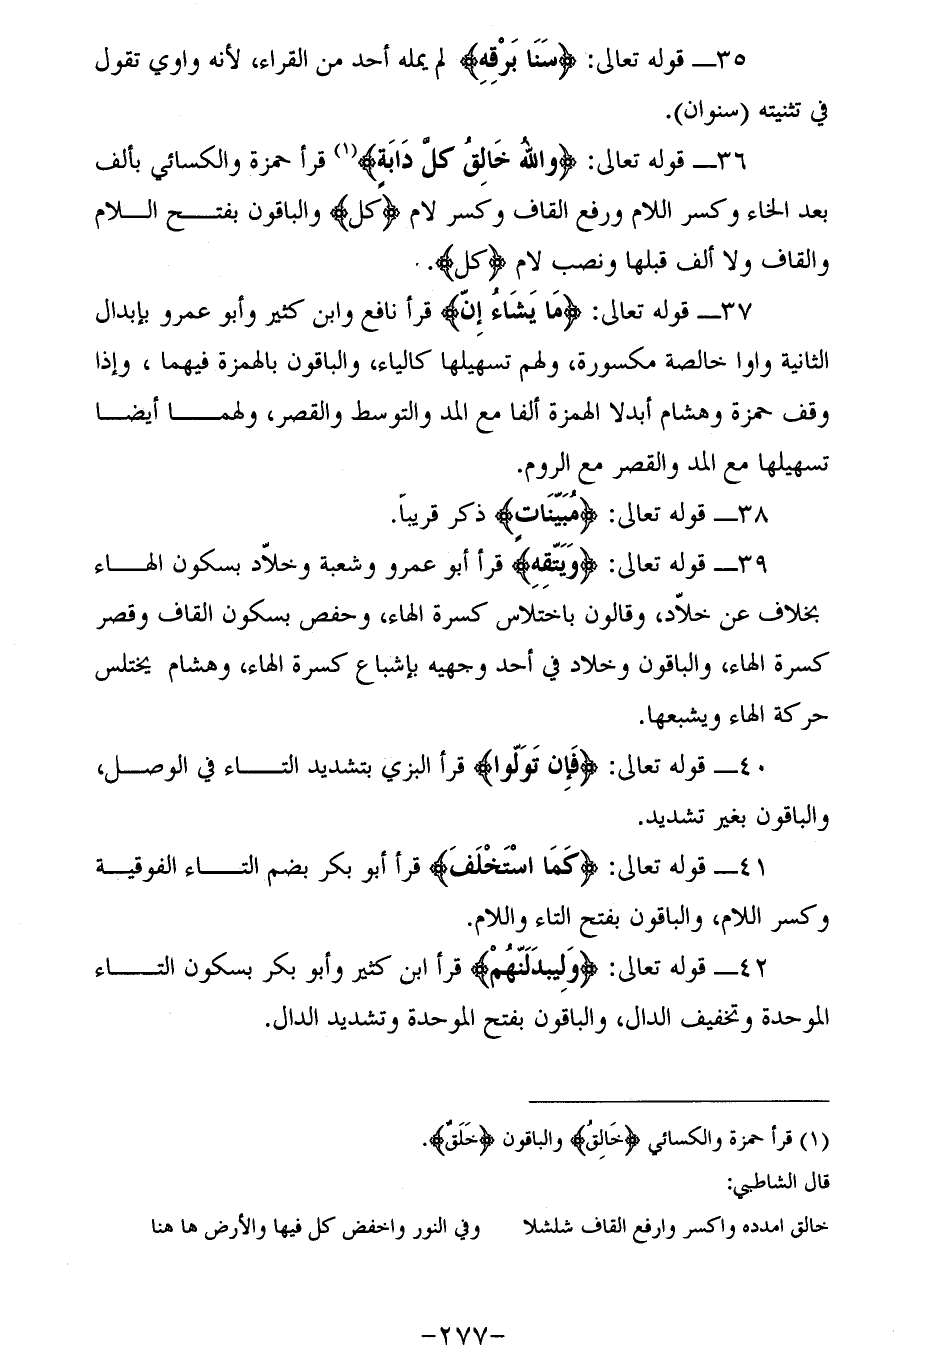 ٣٥ــ قوله تعالى: ﴿سَنَا بَرْقِهِ﴾ لم يمله أحد من القراء، لأنه واوي تقول
في تثنيته (سنوان).
٣٦ــ قوله تعالى: ﴿واللهُ خَالِقُ كلَّ دَابَةٍ﴾(١) قرأ حمزة والكسائي بألف
بعد الخاء وكسر اللام ورفع القاف وكسر لام ﴿كل﴾ والباقون بفتـــح الـــلام
والقاف ولا ألف قبلها ونصب لام ﴿كل﴾.
٣٧ــ قوله تعالى: ﴿مَا يَشَاءُ إِنّ﴾ قرأ نافع وابن كثير وأبو عمرو بإبدال
الثانية واوا خالصة مكسورة، ولهم تسهيلها كالياء، والباقون بالهمزة فيهما ، وإذا
وقف حمزة وهشام أبدلا الهمزة ألفا مع المد والتوسط والقصر، ولهمـــا أيضـا
تسهيلها مع المد والقصر مع الروم.
٣٨ــ قوله تعالى: ﴿مُبَيّنَاتٍ﴾ ذكر قريباً.
٣٩ــ قوله تعالى: ﴿وَيَتّقِهِ﴾ قرأ أبو عمرو وشعبة وخلاّد بسكون الهـــاء
بخلاف عن خلاّد، وقالون باختلاس كسرة الهاء، وحفص بسكون القاف وقصر
كسرة الهاء، والباقون وخلاد في أحد وجهيه بإشباع كسرة الهاء، وهشام يختلس
حركة الهاء ويشبعها.
٤٠ــ قوله تعالى: ﴿فَإِن تَوَلّوا﴾ قرأ البزي بتشديد التـــاء في الوصــل،
والباقون بغير تشديد.
٤١ــ قوله تعالى: ﴿كَمَا اسْتَخْلَفَ﴾ قرأ أبو بكر بضم التـــاء الفوقيــة
وكسر اللام، والباقون بفتح التاء واللام.
٤٢ــ قوله تعالى: ﴿وَلَيبدَلَنّهُمْ﴾ قرأ ابن كثير وأبو بكر بسكون التـــاء
الموحدة وتخفيف الدال، والباقون بفتح الموحدة وتشديد الدال.
(١) قرأ حمزة والكسائي ﴿خَالِقُ﴾ والباقون ﴿خَلَقَ﴾.
قال الشاطبي:
خالق امدده واكسر وارفع القاف شلشلا وفي النور واخفض كل فيها والأرض ها هنا
-٢٧٧-